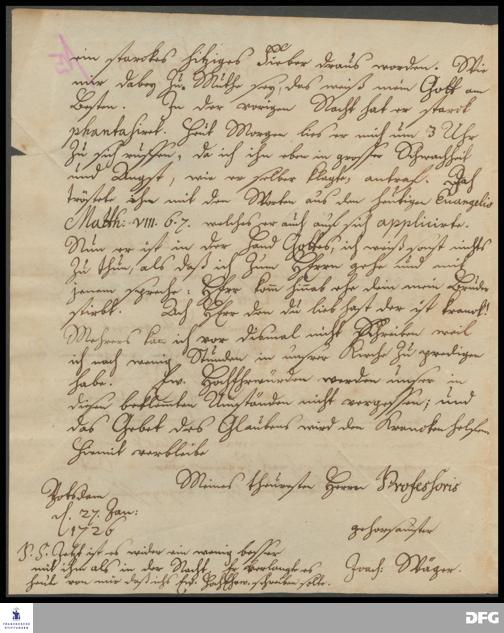 ein starckes hitziges Fieber draus worden. Wie
mir dabey zu Muthe sey, das weiß mein Gott am
Besten. In der vorigen Nacht hat er starck
phantasiret. Heut Morgen lies er mich um 3 Uhr
zu sich ruffen, da ich ihn eben in grosser Schwachheit
und Angst, wie er selber klagte, antraf. Ich
tröstete ihn mit den Worten aus dem heutigen Euangelio
Matth: VIII. 6. 7. welches er auch auf sich applicirte.
Nun er ist in der Hand Gottes, ich weiß sonst nichts
zu thun, als daß ich zum Herrn gehe und mit
jenem spreche: HErr komm hinab ehe dein mein Bruder
stirbt. Ach HErr den du lieb hast der ist kranck!
Mehrers kan ich vor dismal nicht schreiben weil
ich nach wenig Stunden in unsrer Kirche zu predigen
habe. Ew. HochEhrwürden werden unser in
diesen beklemten Umständen nicht vergessen; und
das Gebet des Glaubens wird dem Krancken helfen
hiemit verbleibe
Meines theuresten Herrn Professoris
Potsdam
d. 27. Jan:
1726
gehorsamster
P. S. Jetzt ist es wider ein wenig besser
mit ihm als in der Nacht. Er verlangte es
Joach: Wäger.
heute von mir daß ichs Ew. HochEhrw. schreiben solte.
FRANCKESCHE STIFTUNGEN
DFG